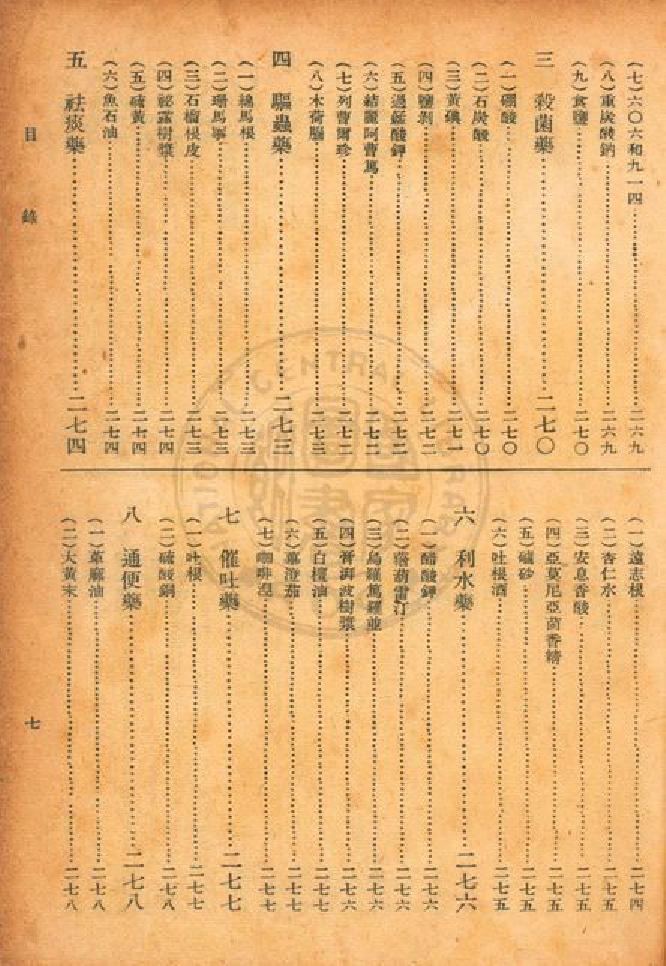 (七)六〇六和九一四 二六九
(八)重炭酸鈉 二六九
(九)食鹽 二七〇
三 殺菌藥 二七〇
(一)硼酸 二七〇
(二)石炭酸 二七〇
(三)黃碘 二七一
(四)鹽剝 二七二
(五)過錳酸鉀 二七二
(六)結麗阿曹篤 二七二
(七)列曹爾珍 二七二
(八)木荷腦 二七三
四 驅蟲藥 二七三
(一)綿馬根 二七三
(二)珊馬寧 二七三
(三)石榴根皮 二七三
(四)祕露樹漿 二七四
(五)硫黃 二七四
(六)魚石油 二七四
五 祛痰藥 二七四
(一)遠志根 二七四
(二)杏仁水 二七五
(三)安息香酸 二七五
(四)亞莫尼亞茴香精 二七五
(五)礵砂 二七五
(六)吐根酒 二七五
六 利水藥 二七六
(一)醋酸鉀 二七六
(二)撒葫雷汀 二七六
(三)烏羅篤羅並 二七六
(四)骨湃波樹漿 二七六
(五)白檀油 二七七
(六)蓽澄茄 二七七
(七)咖啡涅 二七七
七 催吐藥 二七七
(一)吐根 二七七
(二)硫酸銅 二七八
八 通便藥 二七八
(一)萆麻油 二七八
(二)大黃末 二七八
目錄
七
CENTRAL LIBRARY